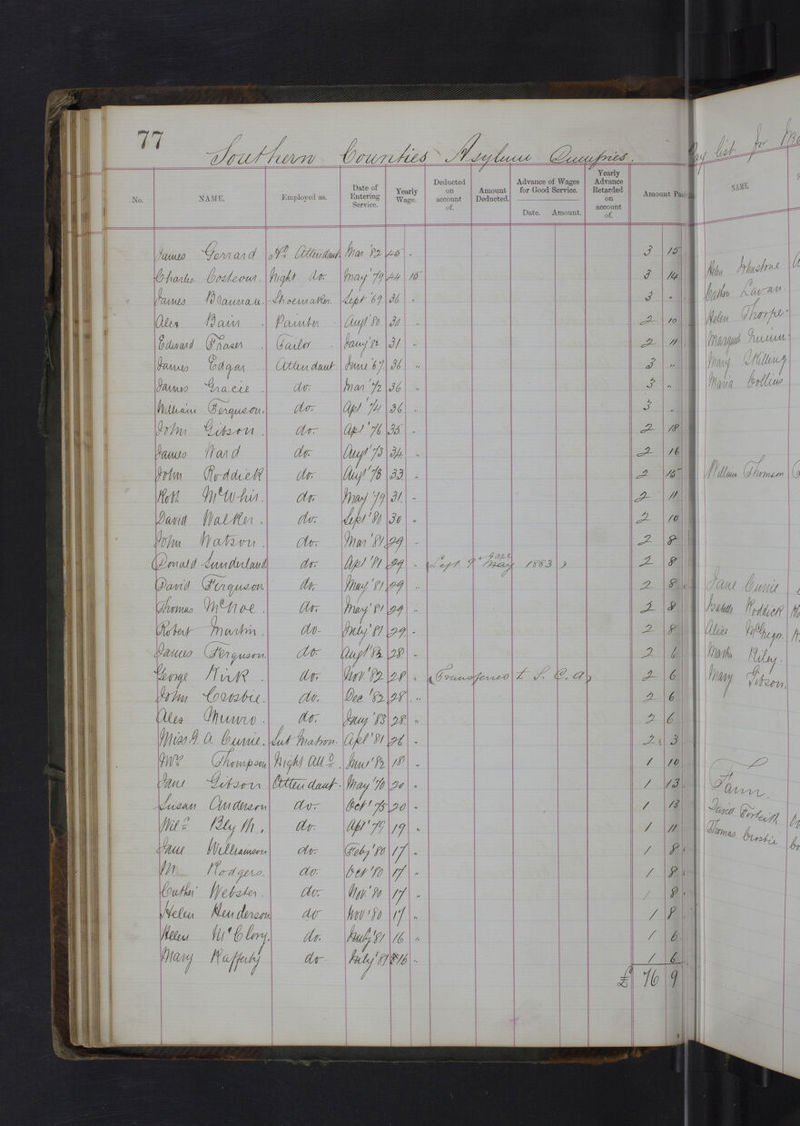 77
Southern Counties Asylum Dumfries.
No. NAME. Employed as. Date of Entering Service. Yearly Wage. Deducted on account of. Amount Deducted. Advance of Wages for Good Service. Date. Amount. Yearly Advance Retarded on account of. Amount Paid
James Gerrard Hd. Attendant Mar '82 45 - 3 15
Charles Costeour Night do. May '79 44 10 3 14
James Brannan Shoemaker Sept '69 36 - 3 -
Alex Bain Painter Augt '80 30 - 2 10
Edward Fraser Tailor Jany '82 31 - 2 11
James Edgar Attendant June '67 36 " 3 "
James Gracie do. Mar '72 36 - 3 "
William Ferguson do. Apl '74 36 - 3 -
John Gibson do. Apl '76 35 - 2 18
James Ward do. Augt '73 34 - 2 16
John Roddick do. Augt '78 33 - 2 15
Robt McWhir. do. May '79 31 - 2 11
David Walker. do. Sept '80 30 - 2 10
John Watson. do. Mar '81 29 - 2 8
Donald Sunderland do. Apl '81 29 - Left 9th May 1883 2 8
David Ferguson do. May '81 29 - 2 8
Thomas McNoe. do. May '81 29 - 2 8
Robert Martin do. July '81 29 - 2 8
James Ferguson do. Augt '82 28 - 2 6
George Kirk do. Nov '82 28 - Transferred to S. C. A. 2 6
John Crosbie. do. Dec '82 28 " 2 6
Alex Munro. do. Jany '83 28 " 2 6
Miss. A. Currie. Sub Matron. Apl '81 26 - 2 3
Mrs Thompson Night Attt. June '82 18 - 1 10
Jane Gibson Attendant May '70 20 - 1 13
Susan Anderson do. Oct '75 20 - 1 13
Bly M. do. Apl '79 19 - 1 11
Jane Williamson do. Feby '80 17 - 1 8
M Rodgers. do. Oct '80 17 - 1 8
Cathr Webster. do. Nov '80 17 - 1 8
Helen Henderson do Nov '80 17 " 1 8
Helen McClory. do. July '81 16 " 1 6
Mary Rafferty do July '81 16 - 1 6
£ 76 9
Pay list for
NAME.
Johnstone
Cathr Lavan
Helen Thorpe
Margaret
Mary Skilling
Maria Collins
William Thomson
Jane Currie
Isabella Roddick
Alice McGregor
Martha Riley
Mary Gibson
Farm
David Forteith
Thomas Crosbie